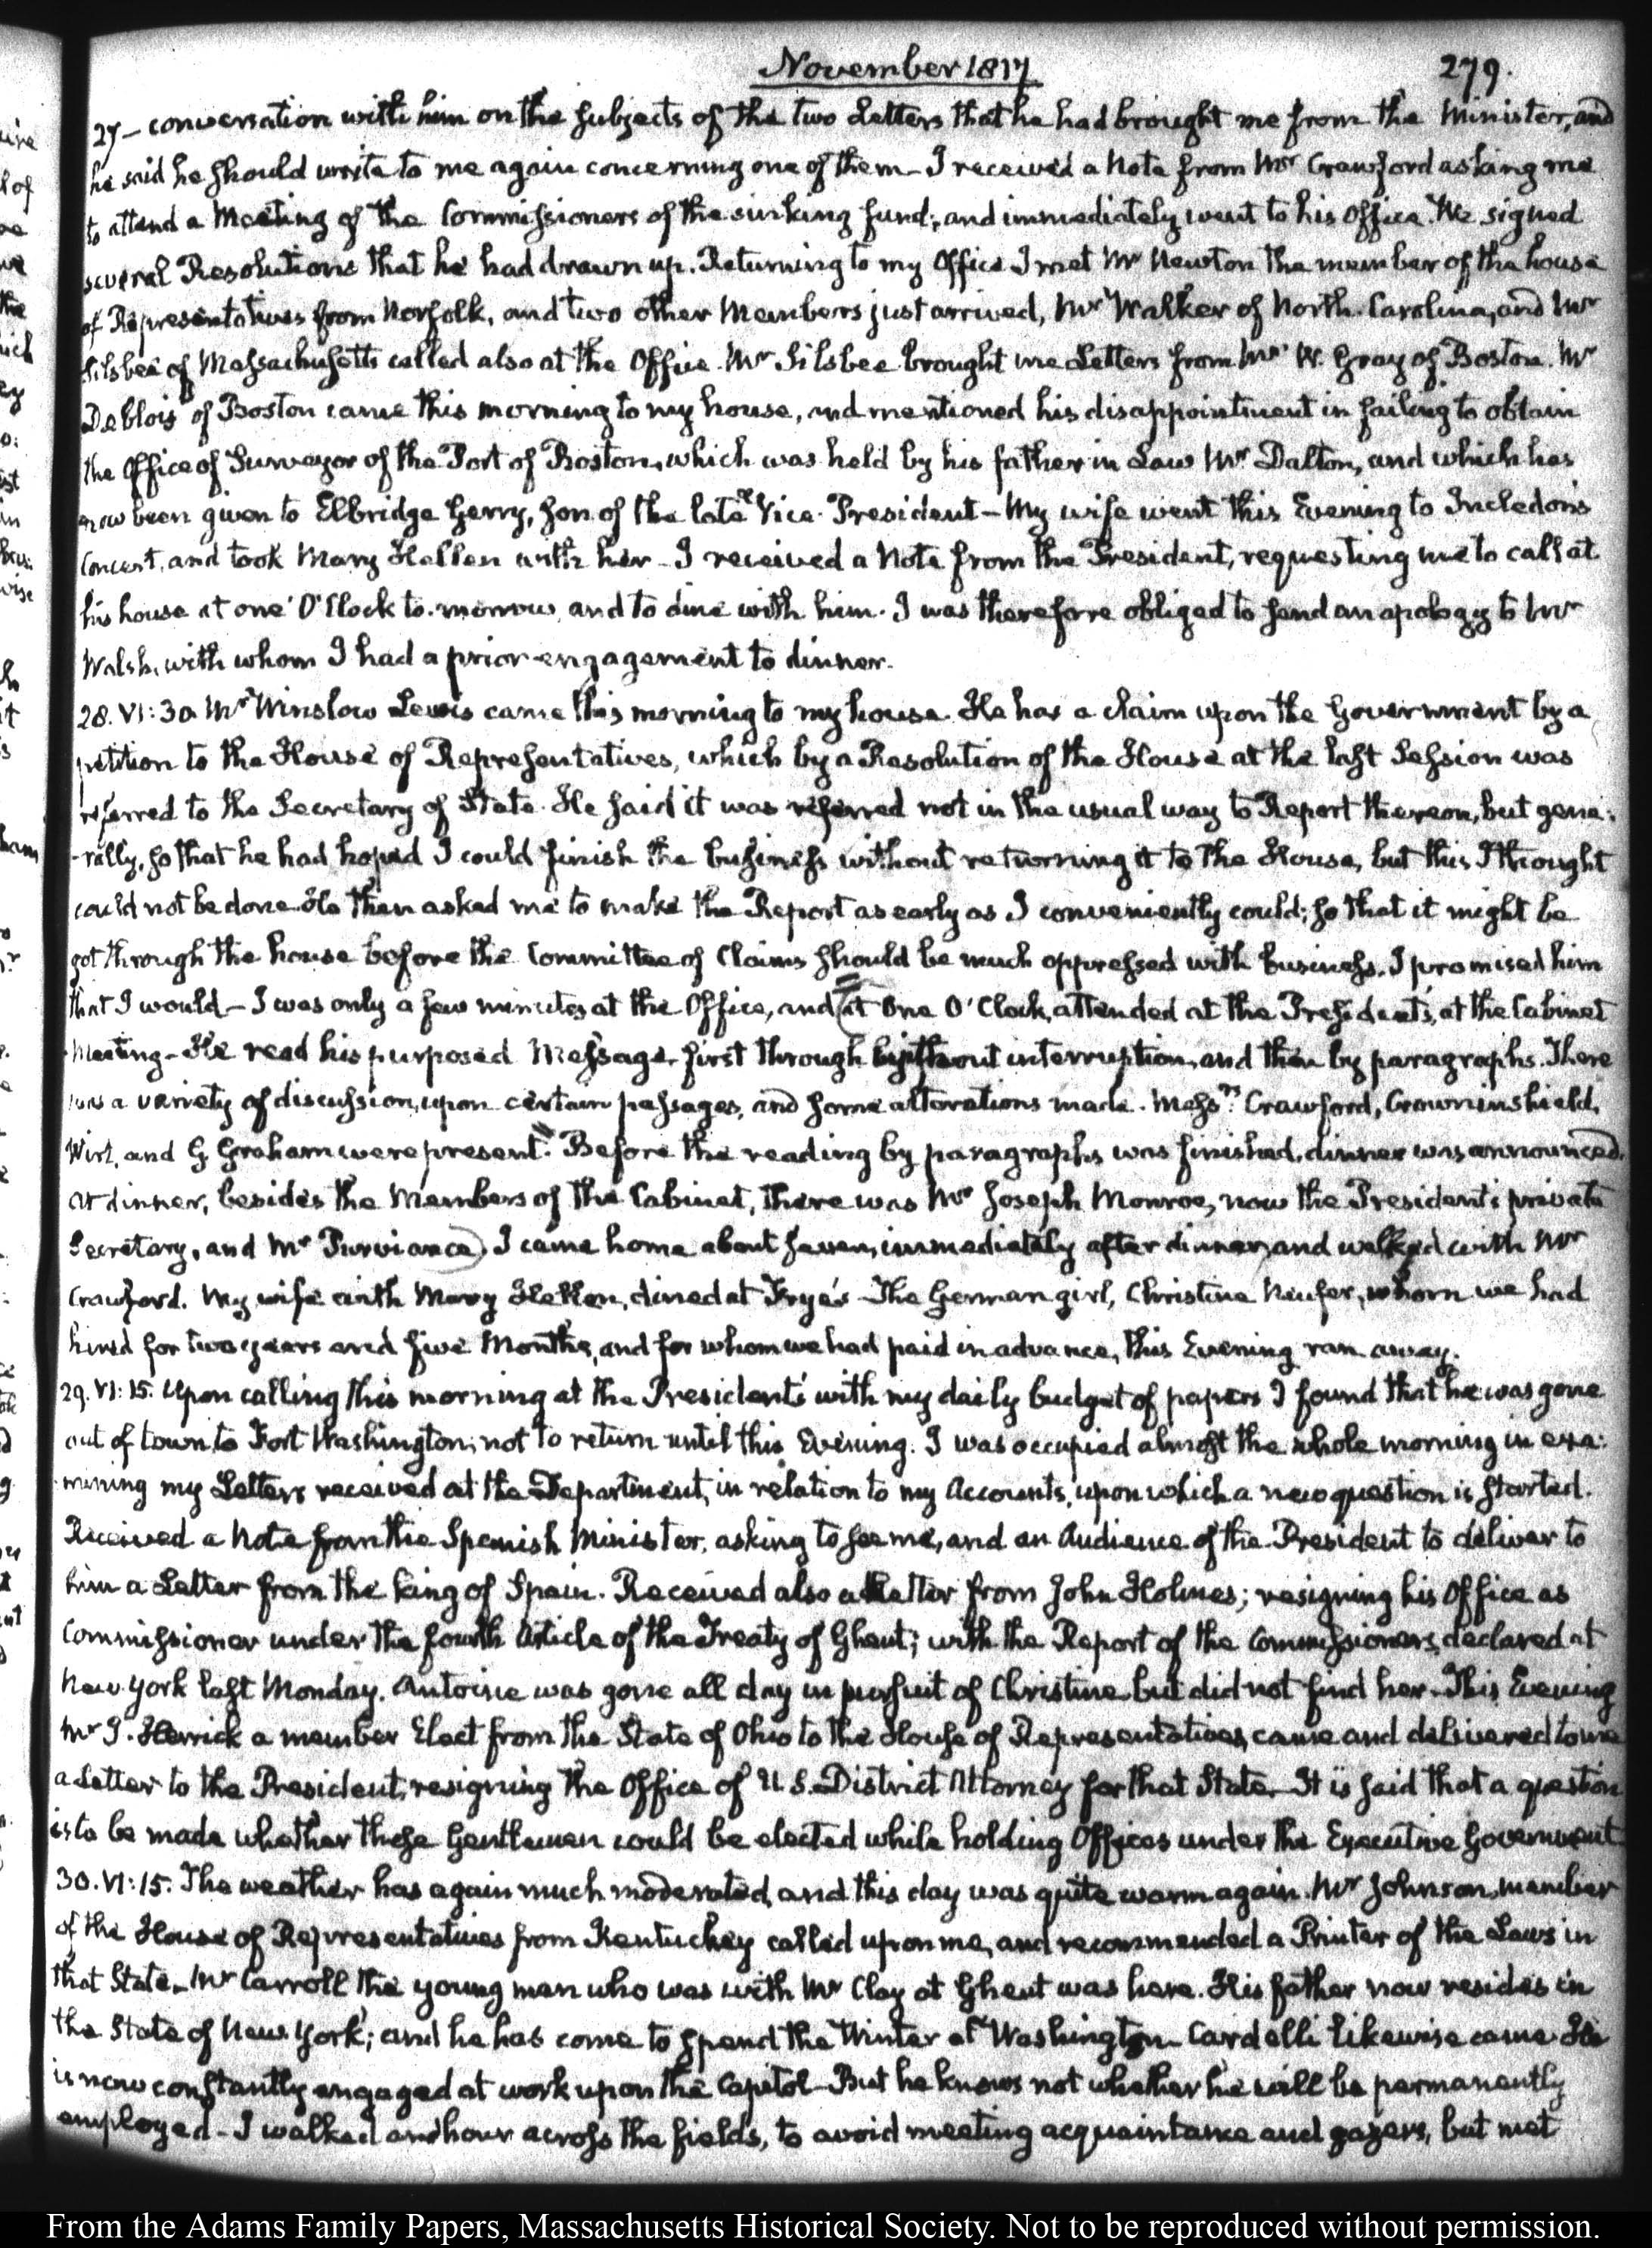 November 1817
279.
27 – conversation with him on the subjects of the two Letters that he had brought me from the Minister, and
he said he should write to me again concerning one of them – I received a Note from Mr Crawford asking me
to attend a Meeting of the Commissioners of the sinking fund; and immediately went to his Office. We signed
several Resolutions that he had drawn up. Returning to my Office I met Mr Newton the member of the house
of Representatives from Norfolk, and two other Members just arrived, Mr Walker of North-Carolina, and Mr
Silsbee of Massachusetts called also at the Office. Mr Silsbee brought me Letters from Mr W. Gray of Boston. Mr
Deblois of Boston came this morning to my house, and mentioned his disappointment in failing to obtain
the Office of Surveyor of the Port of Boston, which was held by his father in Law Mr Dalton, and which has
now been given to Elbridge Gerry, Son of the late Vice-President – My wife went this Evening to Incledon's
Concert, and took Mary Hellen with her – I received a Note from the President, requesting me to call at
his house at one O'Clock to-morrow, and to dine with him. I was therefore obliged to send an apology to Mr
Walsh, with whom I had a prior engagement to dinner.
28. VI:30. Mr Winslow Lewis came this morning to my house. He has a claim upon the Government by a
petition to the House of Representatives, which by a Resolution of the House at the last Session was
referred to the Secretary of State. He said it was referred not in the usual way to Report thereon, but gene-
-rally, so that he had hoped I could finish the business without returning it to the House, but this I thought
could not be done. He then asked me to make the Report as early as I conveniently could; so that it might be
got through the house before the Committee of Claims should be much oppressed with business. I promised him
that I would – I was only a few minutes at the Office, and at One O'Clock, attended at the President's, at the Cabinet
Meeting – He read his purposed Message, first through without interruption, and then by paragraphs. There
was a variety of discussion, upon certain passages, and some alterations made. Messrs Crawford, Crowninshield,
Wirt, and G Graham were present. Before the reading by paragraphs was finished, dinner was announced.
At dinner, besides the Members of the Cabinet, there was Mr Joseph Monroe, now the President's private
Secretary, and Mr Purviance. I came home about seven, immediately after dinner, and walked with Mr
Crawford. My wife with Mary Hellen, dined at Frye's – The German girl, Christine Neufer, whom we had
hired for two years and five Months, and for whom we had paid in advance, this Evening ran away.
29. VI:15. Upon calling this morning at the President's with my daily budget of papers I found that he was gone
out of town to Fort Washington; not to return until this Evening. I was occupied almost the whole morning in exa-
-mining my Letters received at the Department, in relation to my Accounts, upon which a new question is started.
Received a Note from the Spanish Minister, asking to see me, and an Audience of the President to deliver to
him a Letter from the King of Spain. Received also a Letter from John Holmes; resigning his Office as
Commissioner under the fourth Article of the Treaty of Ghent; with the Report of the Commissioners, declared at
New York last Monday. Antoine was gone all day in pursuit of Christine but did not find her – This Evening
Mr S. Herrick a member Elect from the State of Ohio to the House of Representatives, came and delivered to me
a Letter to the President, resigning the Office of U.S. District Attorney for that State – It is said that a question
is to be made whether these Gentlemen could be elected while holding Offices under the Executive Government
30. VI:15. The weather has again much moderated, and this day was quite warm again. Mr Johnson, member
of the House of Representatives from Kentucky called upon me, and recommended a Printer of the Laws in
that State – Mr Carroll the young man who was with Mr Clay at Ghent was here. His father now resides in
the State of New-York; and he has come to spend the Winter at Washington – Cardelli likewise came. He
is now constantly engaged at work upon the Capitol – But he knows not whether he will be permanently
employed – I walked an hour across the fields, to avoid meeting acquaintance and gazers, but met
From the Adams Family Papers, Massachusetts Historical Society. Not to be reproduced without permission.